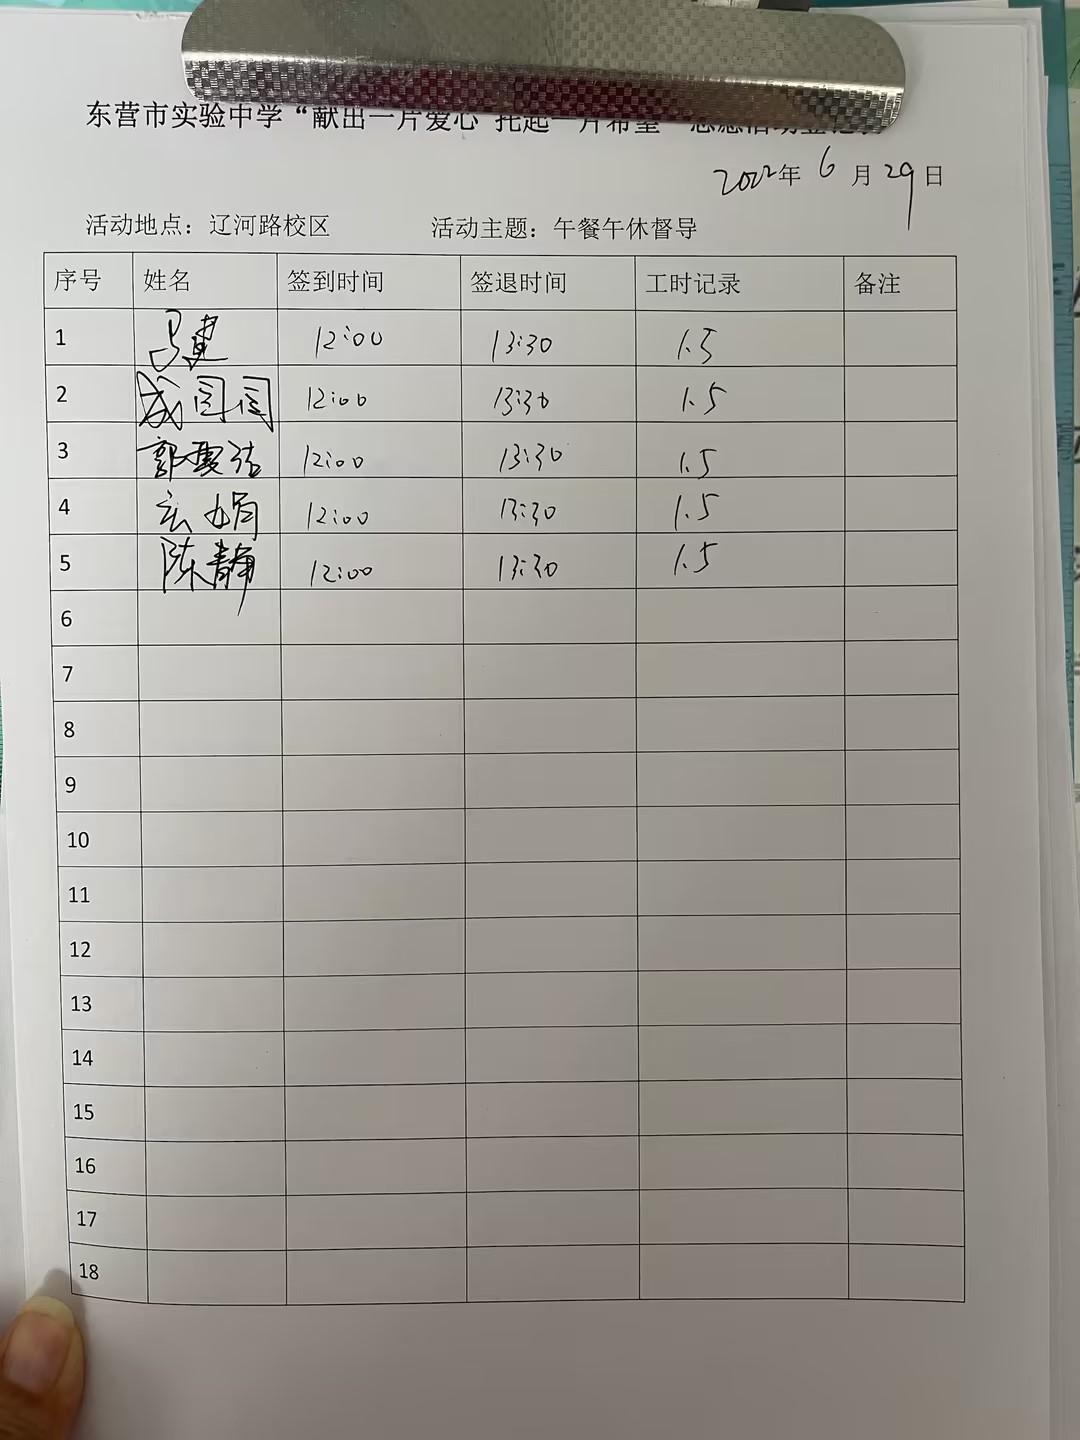 东营市实验中学“献出一片爱心 托起一片希望 志愿活动登记表
2022年 6 月 29 日
活动地点：辽河路校区 活动主题：午餐午休督导
序号 姓名 签到时间 签退时间 工时记录 备注
1 马建 12:00 13:30 1.5
2 成闫闫 12:00 13:30 1.5
3 郭雯洁 12:00 13:30 1.5
4 玄娟 12:00 13:30 1.5
5 陈静 12:00 13:30 1.5
6
7
8
9
10
11
12
13
14
15
16
17
18